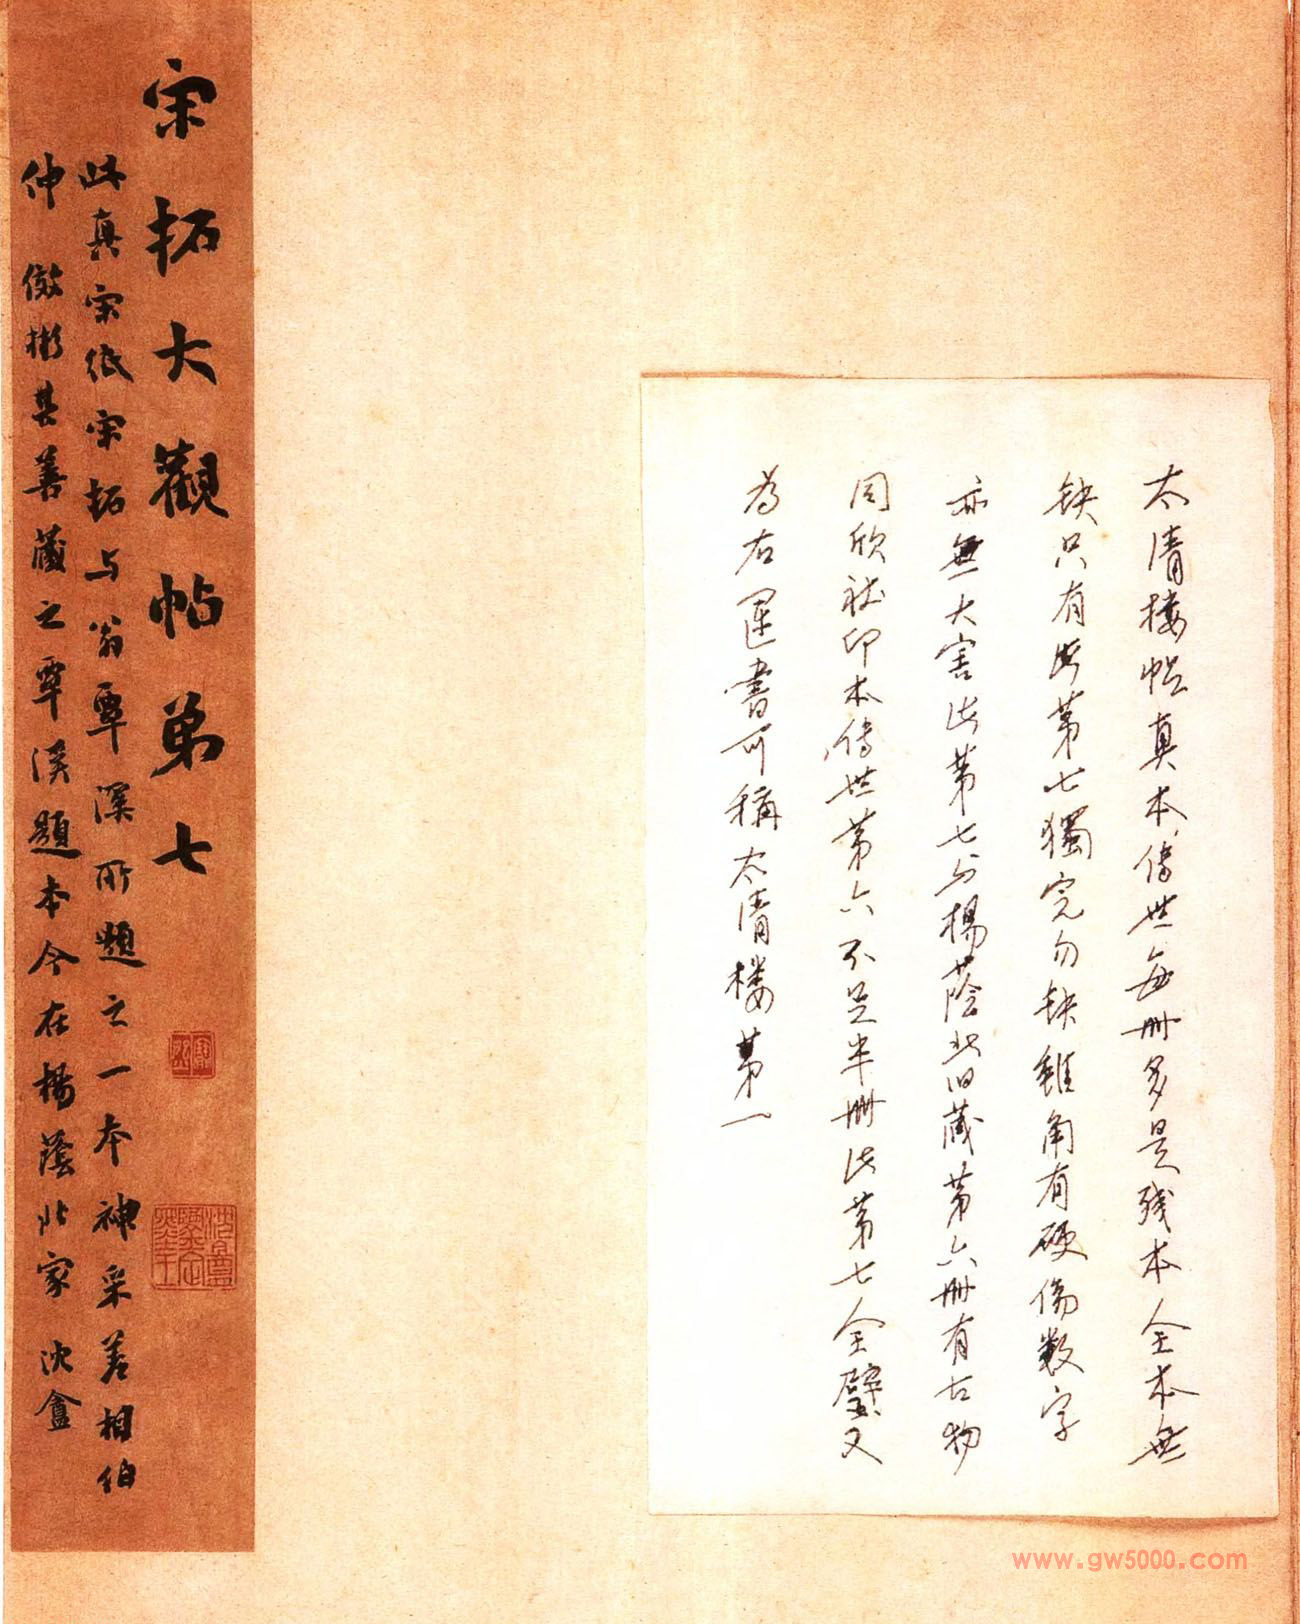 太清楼帖真本傳世每册多是残本全本無
缺只有此第七獨完勿缺雖角有硬傷数字
亦無大害此第七与楊蔭北旧蔵第六册有古物
同欣社印本傳世第六不足半册此第七全璧又
為右軍書可稱太清楼第一
宋拓大觀帖弟七
此真宋紙宋拓与翁覃溪所題之一本神采差相伯
仲 儆彬其善藏之覃溪題本今在楊蔭北家 沈盦
www.gw5000.com